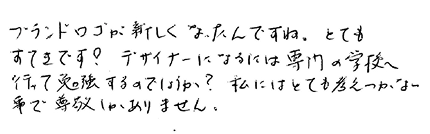 ブランドロゴが新しくなったんですね。とても
すてきです? デザイナーになるには専門の学校へ
行って勉強するのではうか? 私にはとても考えつかない
事で尊敬しかありません。